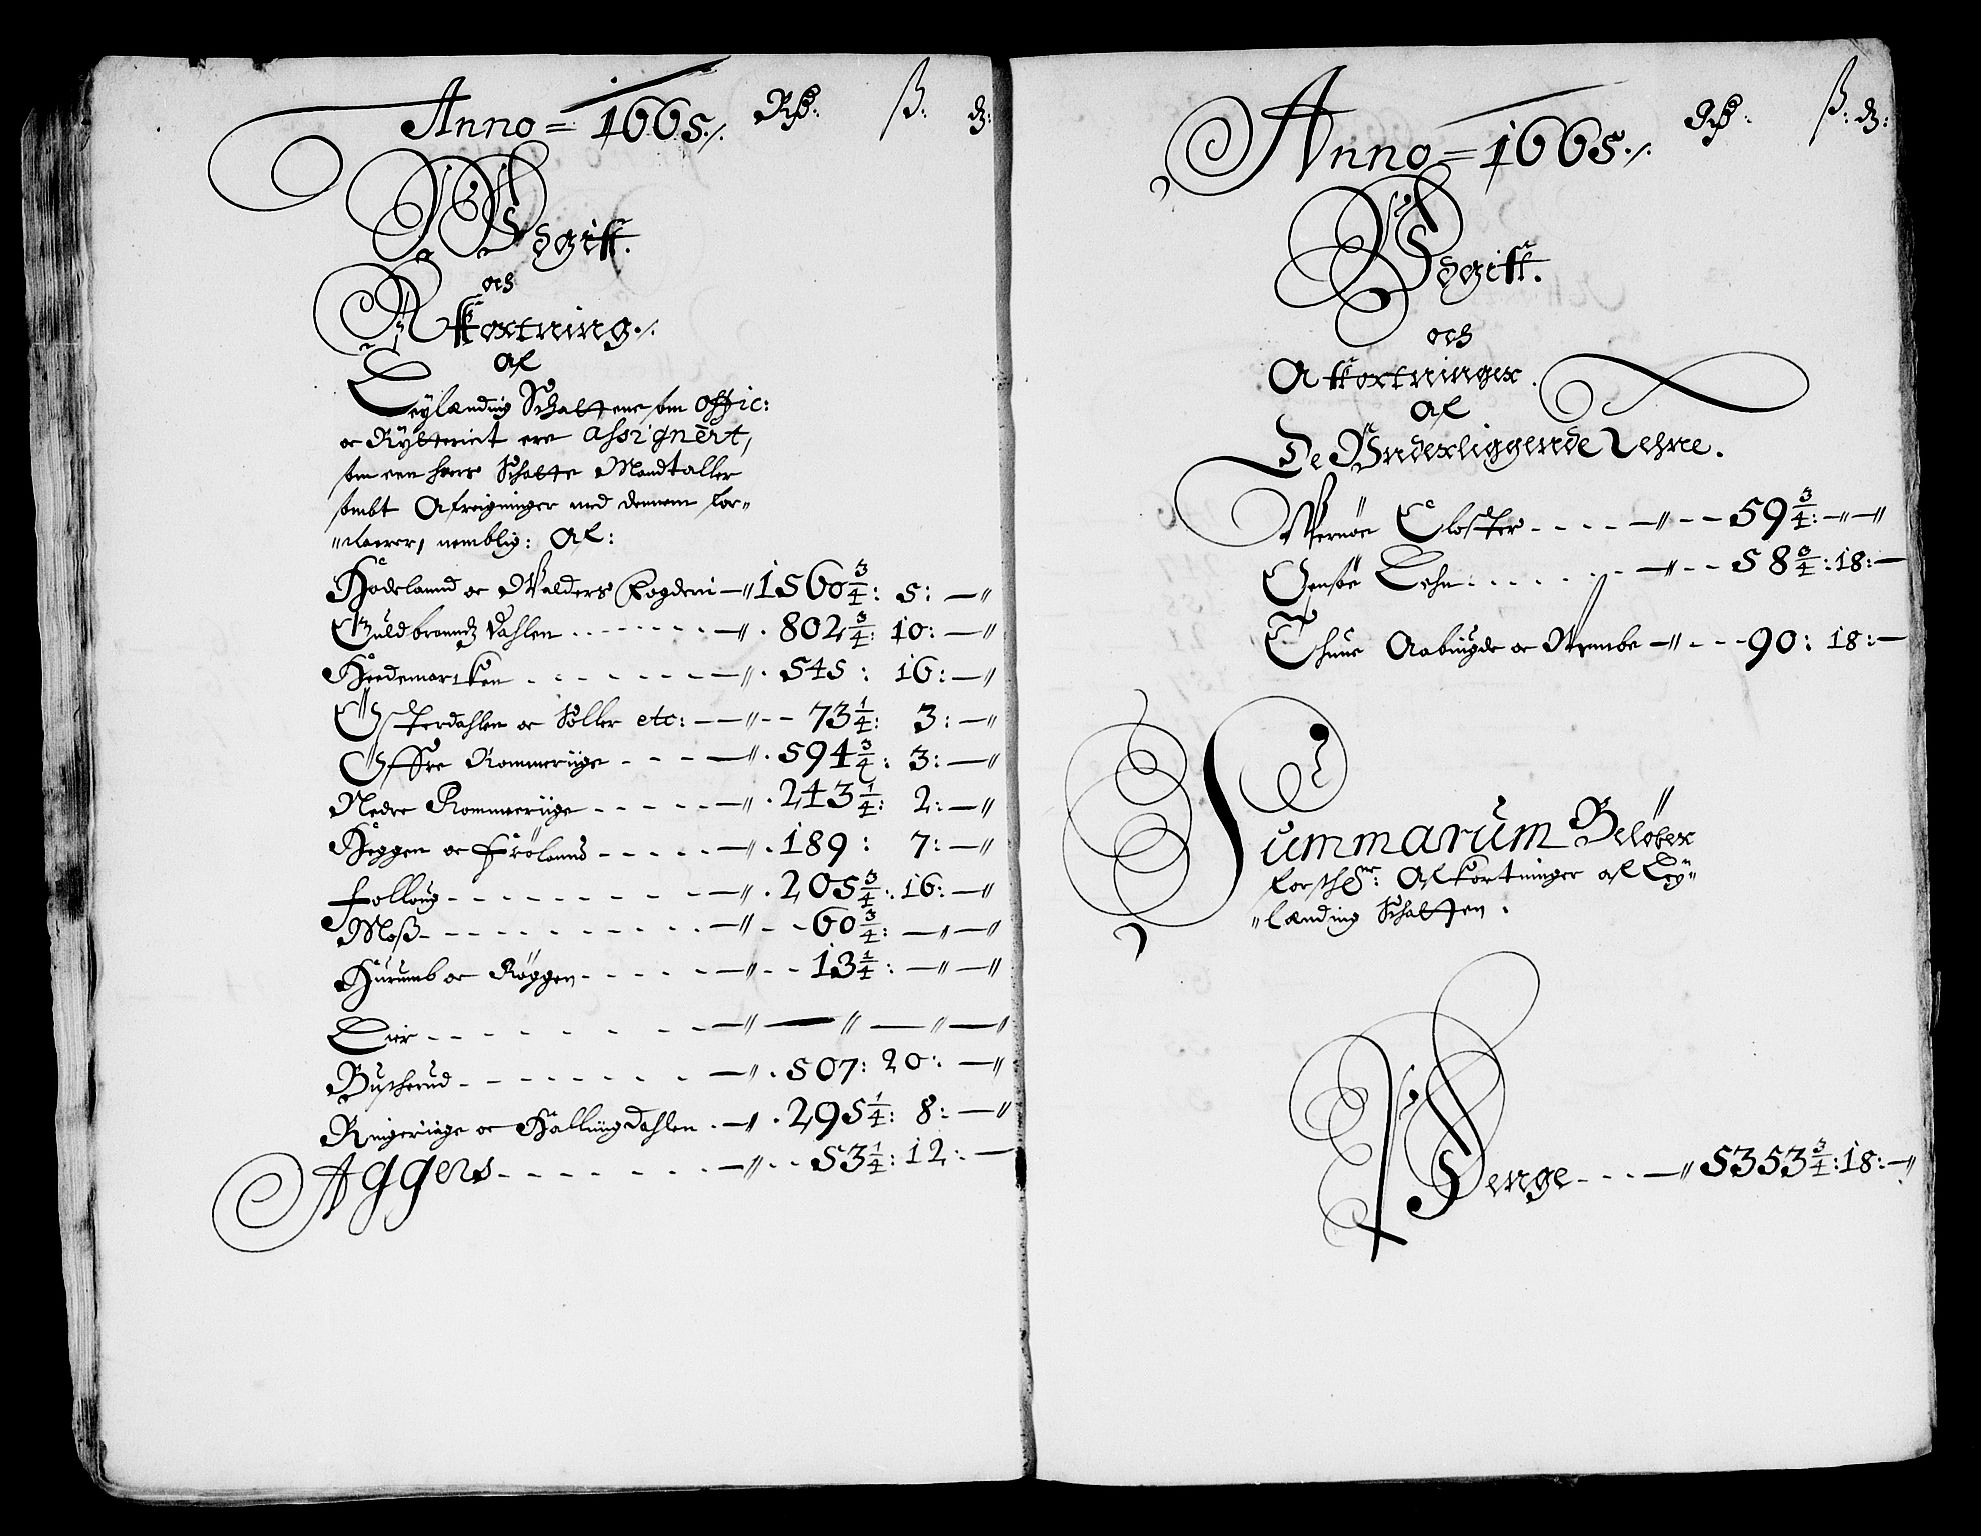 Anno = 1665 ./. Rdr. ß. d:
Udgifft.
och
Affkortning ./.
Af
Leylænding Schattene som Offic:
oc Rytteriet ere Assignert,
som een huers Schatte Mandtaller
sambt Afreigninger med dennem for-
clarer, nemblig: Af:
Hadelannd oc Walders Fogderi - 1560 3/4: 5: -
Guldbrandz Dahlen - 802 3/4: 10: -
Heedemarcken - 545: 16: -
Østerdahlen oc Soller etc: - 73 1/4: 3: -
Øffre Rommeriige - 594 3/4: 3: -
Nedre Rommeriige - 243 1/4: 2: -
Heggen oc Frøland - 189: 7: -
Folloug - 205 3/4: 16: -
Moß - 60 3/4: - -
Hurumb oc Røggen - 13 1/4: - -
Lier - - - -
Buscherud - 507: 20: -
Ringeriige oc Hallingdahlen - 295 1/4: 8: -
Aggers - 53 1/4: 12: -
Anno = 1665 ./. Rdr. ß: d:
Udgifft.
och
Affkortninger.
Af
De Underliggende Lehne.
Wernøe Closter - 59 3/4: - -
Lehn - 58 3/4: 18: -
Thune Aabøigde oc Wembe - 90: 18: -
Summarum Beløber
forschr: Afkortninger af Ley-
lænding Schatten.
Penge - 5353 3/4: 18: -